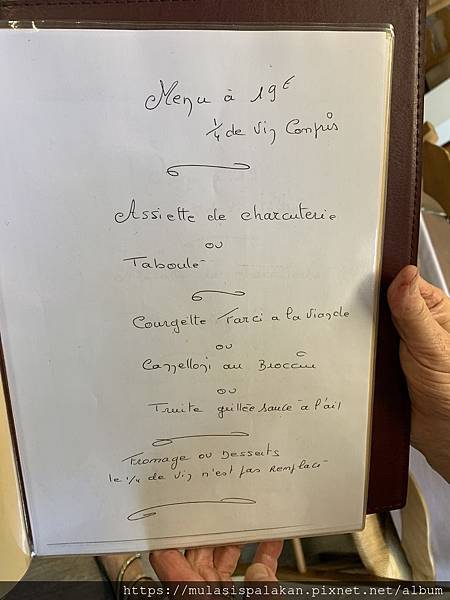 Menu à 19€
1/4 de vin compris
Assiette de charcuterie
ou
Taboulé
Courgette Farci a la viande
ou
Cannelloni au Brocciu
ou
Truite grillée sauce à l'ail
Fromage ou Desserts
le 1/4 de vin n'est pas Remplacé
https://mulasispalakan.pixnet.net/album